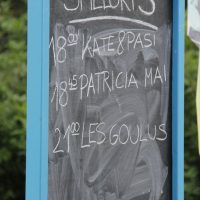 18⁰⁰ KATE&PASI
18⁴⁵ PATRICIA MAI
21⁰⁰ LES GOULUS